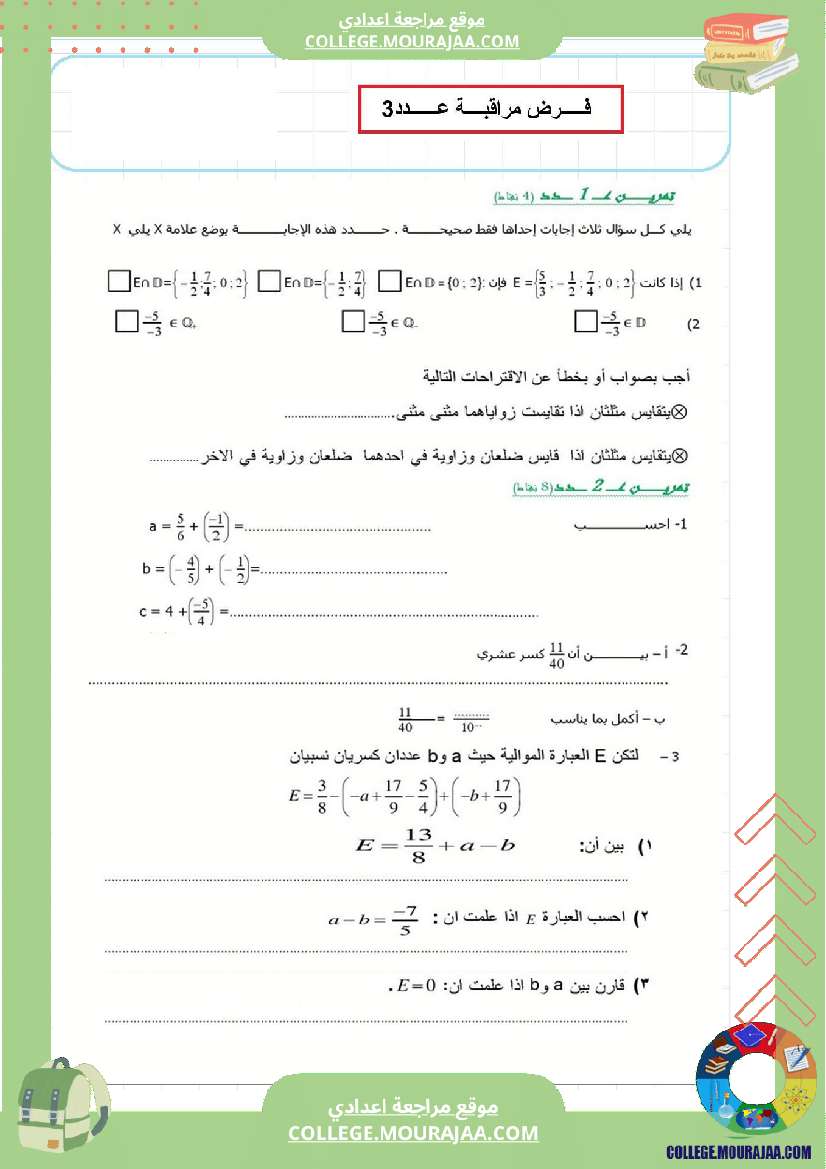 موقع مراجعة اعدادي
COLLEGE.MOURAJAA.COM
فـــرض مراقبـــة عـــــدد3
تمريـــــن عـــ 1 ــــدد (4 نقاط)
يلي كـــل سؤال ثلاث إجابات إحداها فقط صحيحــــــة . حـــــــدد هذه الإجابـــــــــــة بوضع علامة X يلي X
1) إذا كانت E = {5/3 ; -1/2 ; 7/4 ; 0 ; 2} فإن: E∩ⅅ = {0 ; 2} □ E∩ⅅ={-1/2 ; 7/4} □ E∩ⅅ={-1/2 ; 7/4 ; 0 ; 2} □
2) -5/-3 ∈ ⅅ □ -5/-3 ∈ ℚ₋ □ -5/-3 ∈ ℚ₊ □
أجب بصواب أو بخطأ عن الاقتراحات التالية
⊗يتقايس مثلثان اذا تقايست زواياهما مثنى مثنى................................
⊗يتقايس مثلثان اذا قايس ضلعان وزاوية في احدهما ضلعان وزاوية في الاخر...............
تمريـــــن عـــ 2 ــــدد(8 نقاط)
1- احســـــــــــــب
a = 5/6 + (-1/2) =................................................
b = (-4/5) + (-1/2)=................................................
c = 4 +(-5/4) =................................................................................
2- أ – بيـــــــــن أن 11/40 كسر عشري
................................................................................................................................
ب – أكمل بما يناسب 11/40 = ........../10...
3 – لتكن E العبارة الموالية حيث a وb عددان كسريان نسبيان
E = 3/8 - (-a + 17/9 - 5/4) + (-b + 17/9)
١) بين أن: E = 13/8 + a - b
................................................................................................................................
٢) احسب العبارة E اذا علمت ان : a - b = -7/5
................................................................................................................................
٣) قارن بين a وb اذا علمت ان: E = 0 .
................................................................................................................................
موقع مراجعة اعدادي
COLLEGE.MOURAJAA.COM
COLLEGE.MOURAJAA.COM